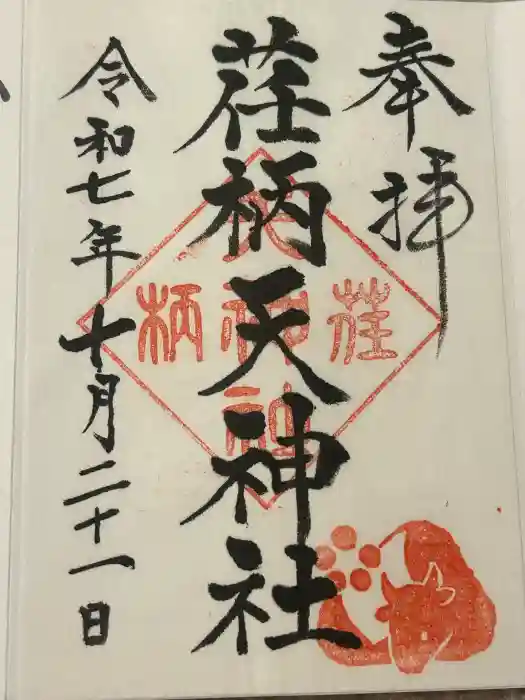 奉拝
荏柄天神社
令和七年十月二十一日
荏柄
天神社